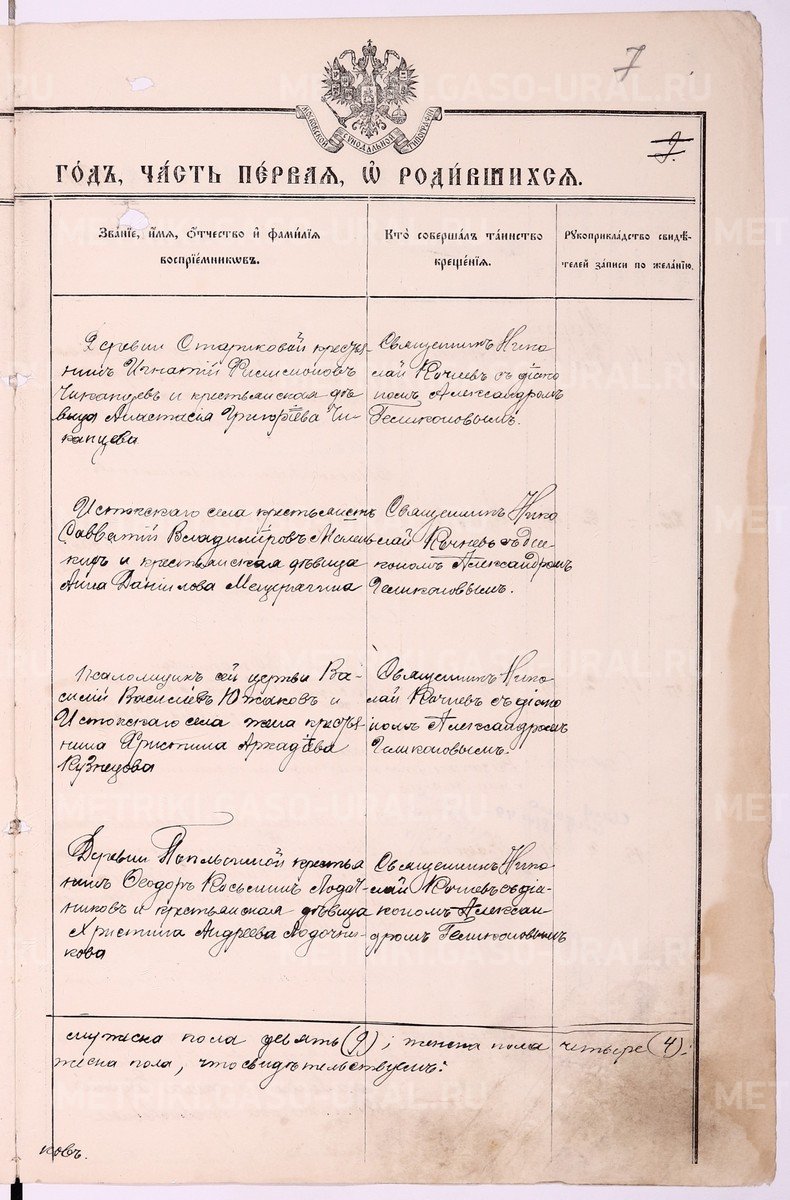 7
МОСКОВСКОЙ СѴНОДАЛЬНОЙ ТИПОГРАФІИ
9.
ГОДЪ, ЧАСТЬ ПЕРВАЯ, Ѡ РОДИВШИХСЯ.
Званіе, имя, отчество и фамилія воспріемниковъ.
Кто совершалъ таинство крещенія.
Рукоприкладство свидѣтелей записи по желанію.
Деревни Стариковой кресть-
янинъ Игнатій Филимоновъ
Чикапцевъ и крестьянская дѣ-
вица Анастасія Григоріева Чи-
капцева
Священникъ Нико
лай Кочневъ съ діако
номъ Александромъ
Геликоновымъ.
Истокскаго села крестьянинъ
Савватій Владиміровъ Малень-
кихъ и крестьянская дѣвица
Анна Даніилова Мещерягина
Священникъ Нико
лай Кочневъ съ діа-
кономъ Александромъ
Геликоновымъ.
Псаломщикъ сей церкви Ва-
силій Васильевъ Южаковъ и
Истокскаго села жена кресть-
янина Христина Аркадіева
Кузнецова
Священникъ Нико
лай Кочневъ съ діако
номъ Александромъ
Геликоновымъ.
Деревни крестья
нинъ Ѳеодоръ Косьминъ Лодоч-
никовъ и крестьянская дѣвица
Христина Андреева Лодочни-
кова
Священникъ Нико
лай Кочневъ съ діа-
кономъ Алексан
дромъ Геликоновымъ
мужеска пола девять (9); женска пола четыре (4).
жеска пола, что свидѣтельствуемъ:
ковъ.
METRIKI.GASO-URAL.RU